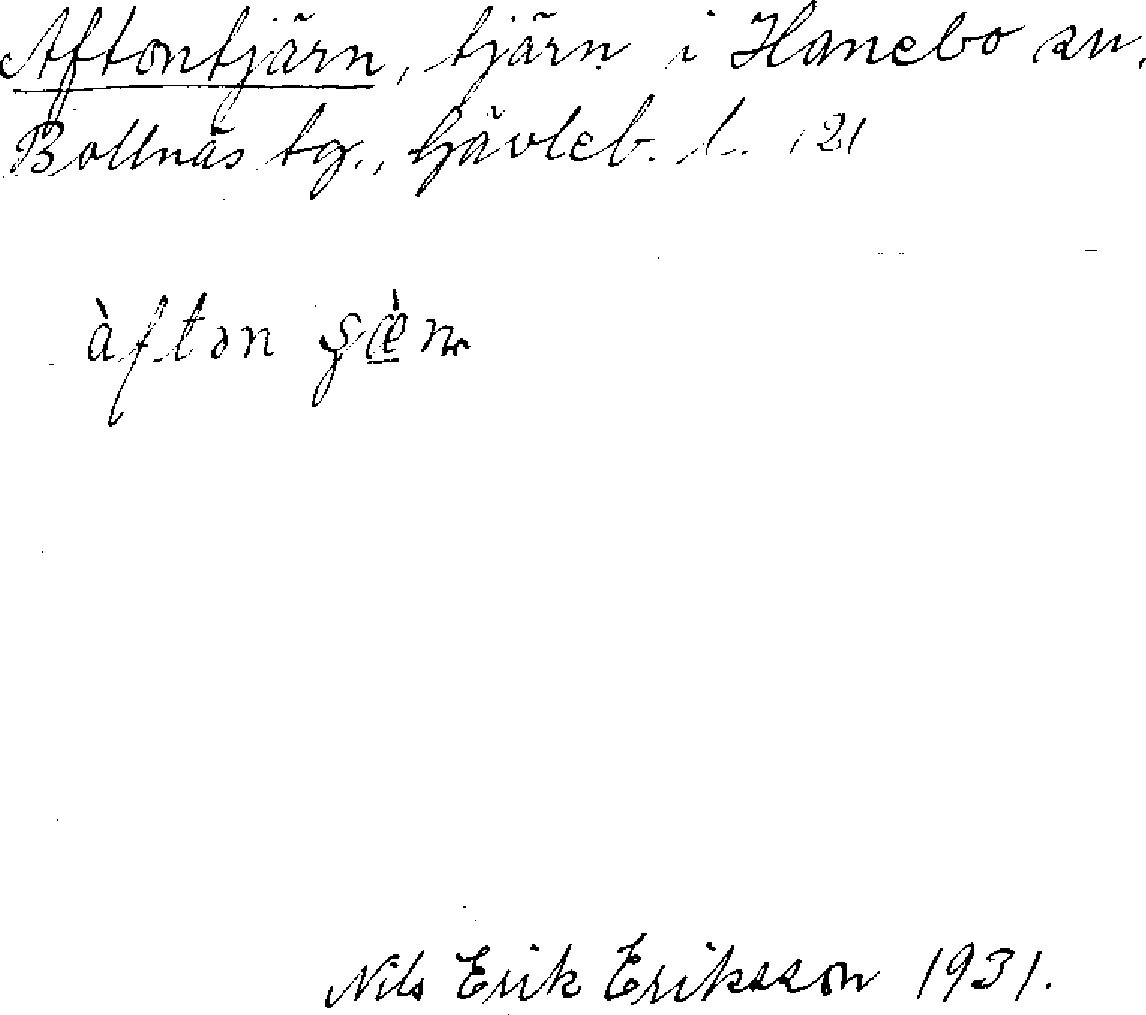 Aftontjärn, tjärn i Hanebo sn.
Bollnäs tg., Gävleb. l. 121
àftɔn
Nils Erik Eriksson 1931.